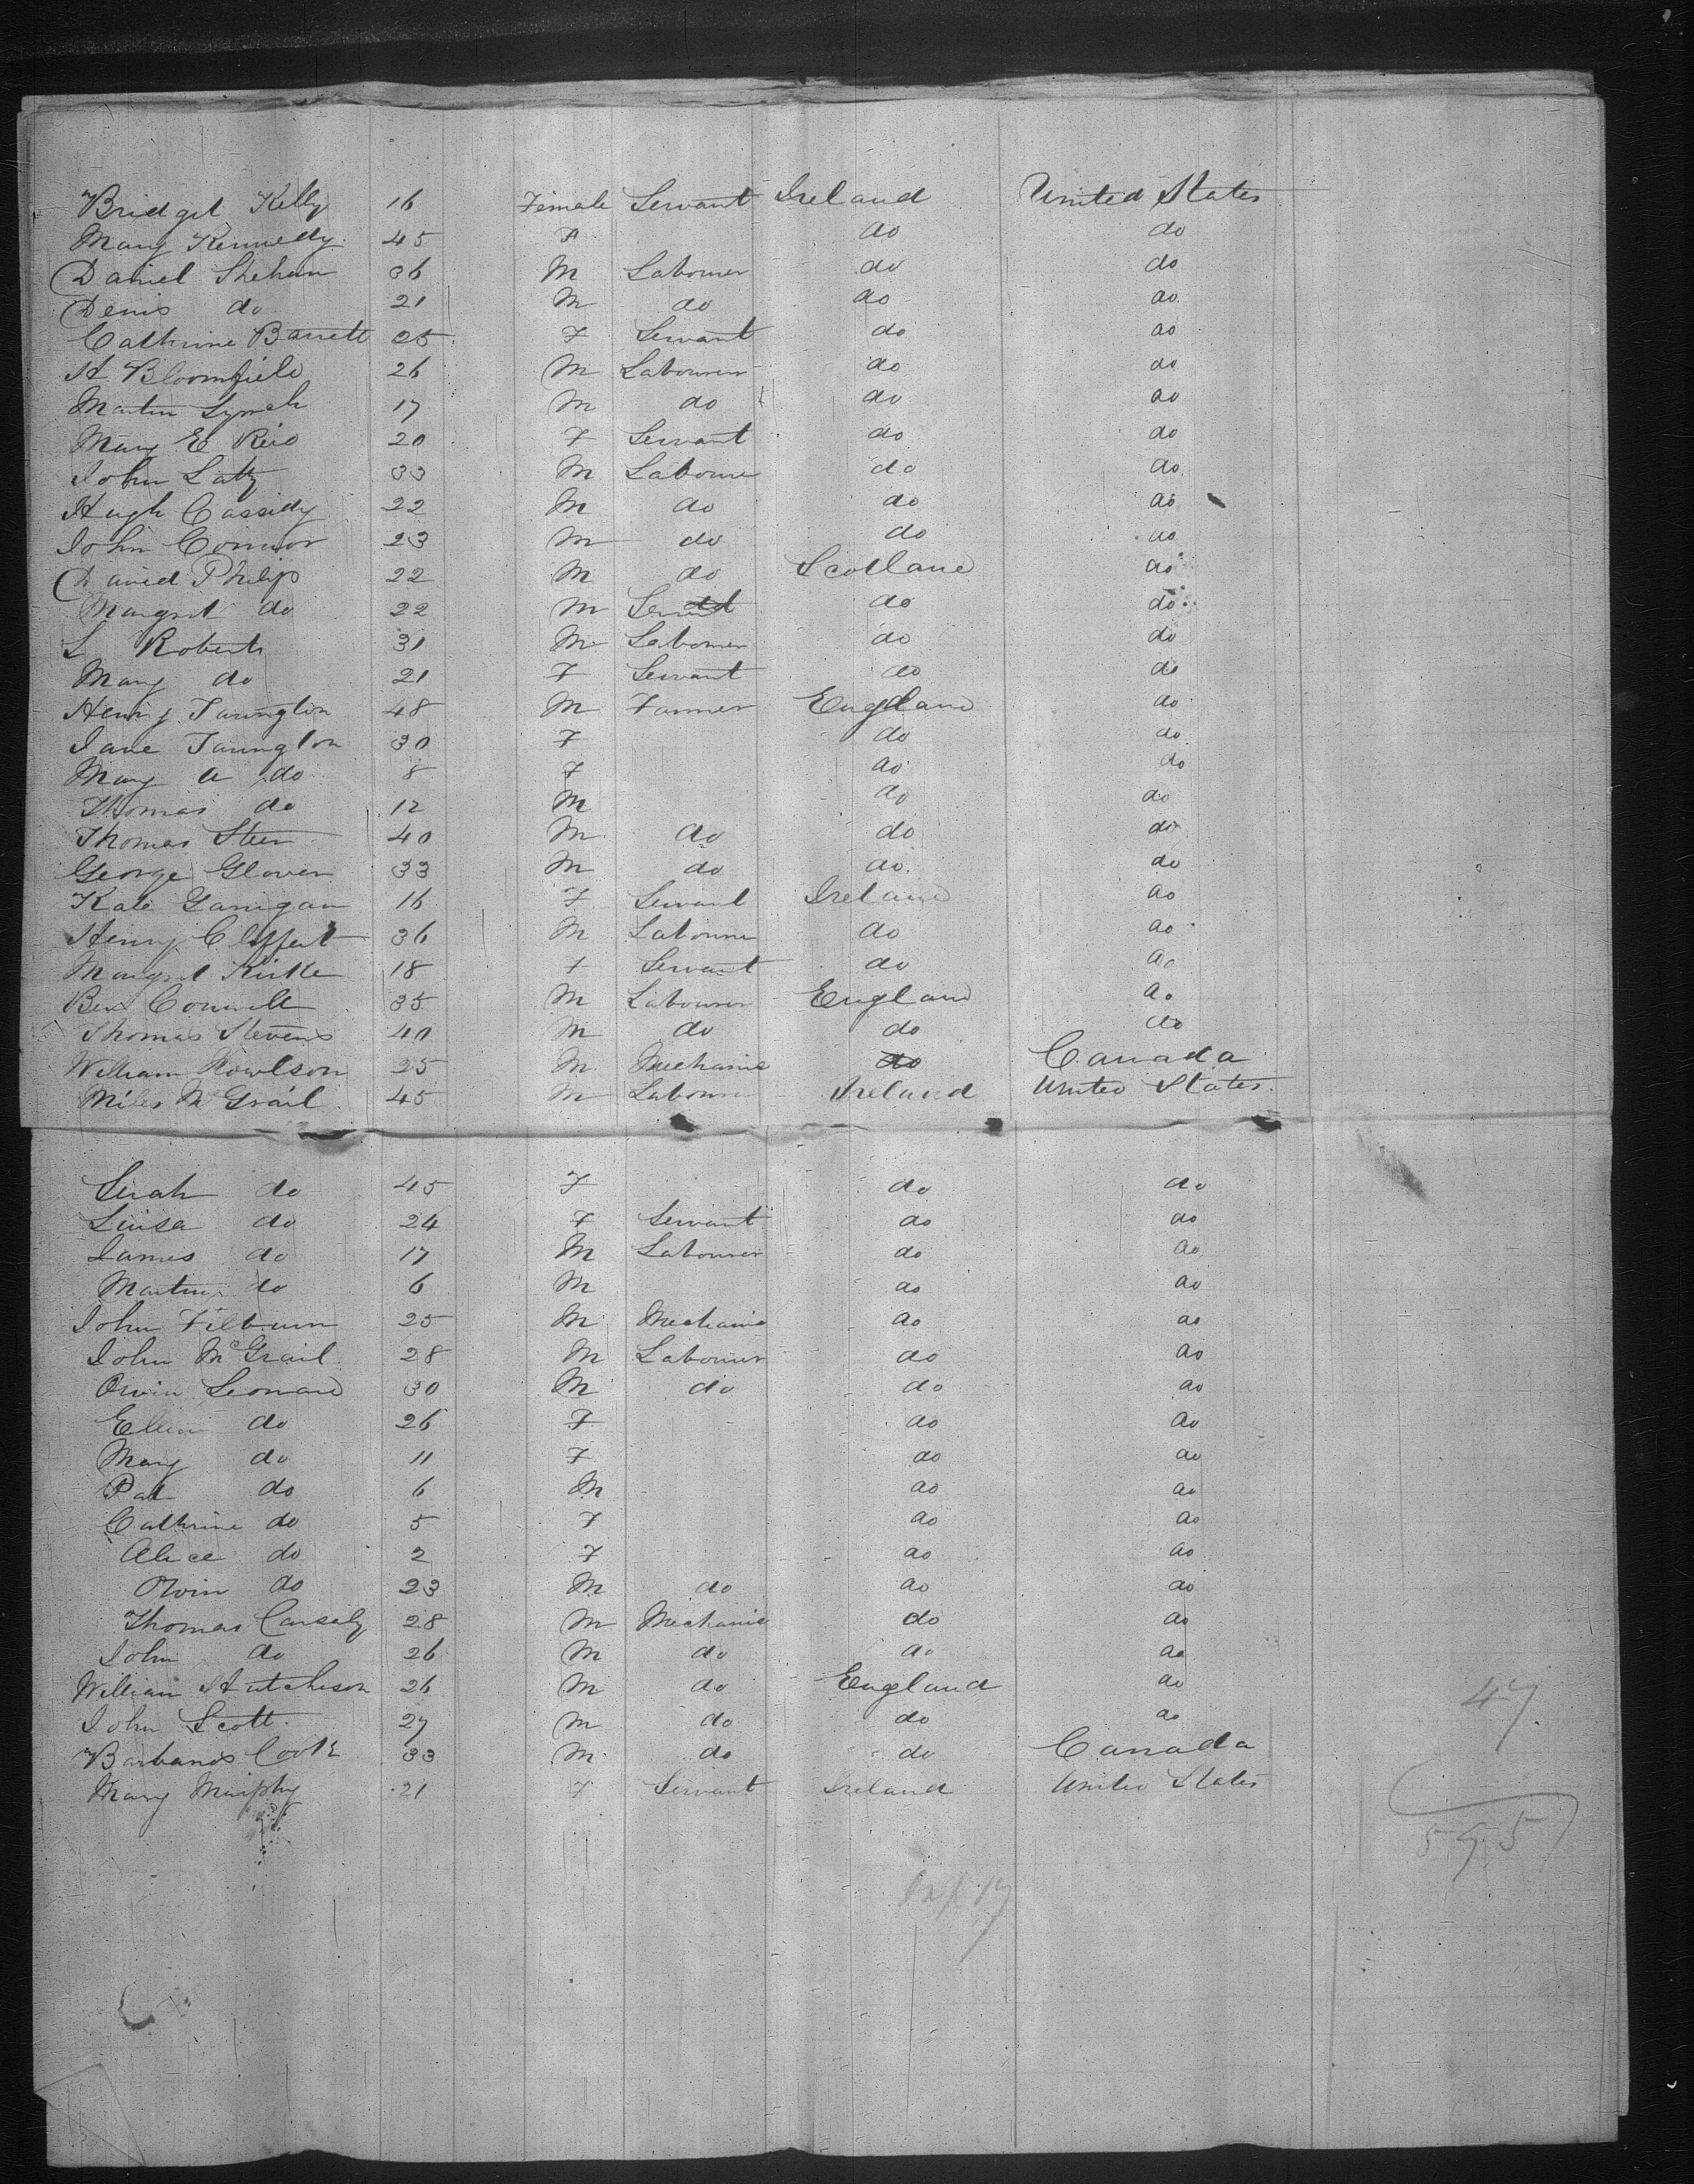 Bridget Kelly 16 Female Servant Ireland United States
Mary Kennedy 45 F do do
Daniel Shehan 36 M Labourer do do
Denis do 21 M do do do
Cathrine Barrett 25 F Servant do do
H Bloomfield 26 M Labourer do do
Martin Lynch 17 M do do do
Mary E Reid 20 F Servant do do
John 33 M Labourer do do
Hugh Cassidy 22 M do do do
John Connor 23 M do do do
David Philip 22 M do Scotland do
Margret do 22 M do do
L Roberts 31 M Labourer do do
Mary do 21 F Servant do do
Henry Tarrington 48 M Farmer England do
Jane Tarrington 30 F do do
Mary A do 8 F do do
Thomas do 12 M do do
Thomas Steen 40 M do do do
George Glover 33 M do do do
Kate Garrigan 16 F Servant Ireland do
Henry 36 M Labourer do do
Margret Kirke 18 F Servant do do
Ben Connell 35 M Labourer England do
Thomas Stevens 40 M do do do
William Rowlson 25 M Mechanic do Canada
Miles McGrail 45 M Labourer Ireland United States
Sarah do 45 F do do
Luisa do 24 F Servant do do
James do 17 M Labourer do do
Martin do 6 M do do
John Filburn 25 M Mechanic do do
John McGrail 28 M Labourer do do
Owin Leonard 30 M do do do
Ellen do 26 F do do
Mary do 11 F do do
Pat do 6 M do do
Cathrine do 5 F do do
Alice do 2 F do do
Owin do 23 M do do do
Thomas 28 M Mechanic do do
John do 26 M do do do
William Hutcheson 26 M do England do
John Scott 27 M do do do
Cook 33 M do do Canada
Mary Murphy 21 F Servant Ireland United States
47